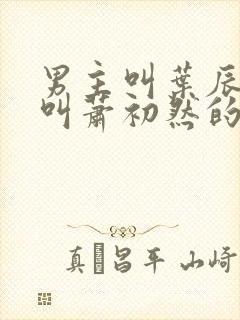 男主叫葉辰
叫蕭初然的
真 昌平 山崎